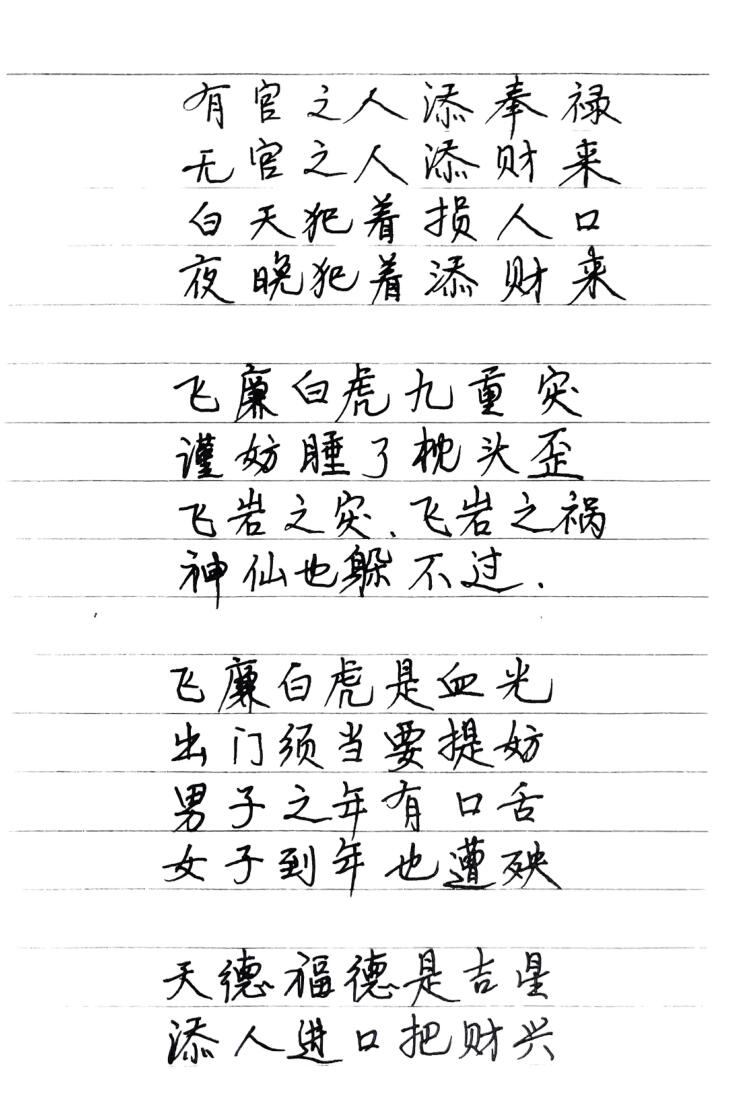 有官之人添奉禄
无官之人添财来
白天犯着损人口
夜晚犯着添财来
飞廉白虎九重灾
谨妨睡了枕头歪
飞岩之灾、飞岩之祸
神仙也躲不过.
飞廉白虎是血光
出门须当要提妨
男子之年有口舌
女子到年也遭殃
天德福德是吉星
添人进口把财兴